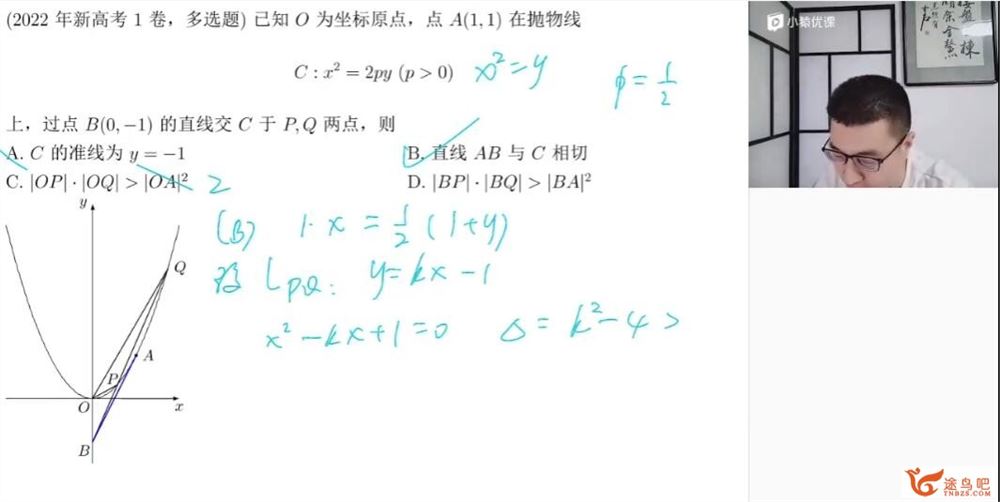 (2022 年新高考 1 卷，多选题) 已知 O 为坐标原点，点 A(1,1) 在抛物线
C : x² = 2py (p > 0)
x² = y
p = 1/2
上，过点 B(0,−1) 的直线交 C 于 P,Q 两点，则
A. C 的准线为 y = −1
B. 直线 AB 与 C 相切
C. |OP| · |OQ| > |OA|²
2
D. |BP| · |BQ| > |BA|²
(B) 1·x = 1/2 (1+y)
设 L_PQ: y = kx − 1
x² − kx + 1 = 0 Δ = k² − 4 >
y
Q
A
P
O
x
B
小猿优课
途鸟吧
TNBZS.COM